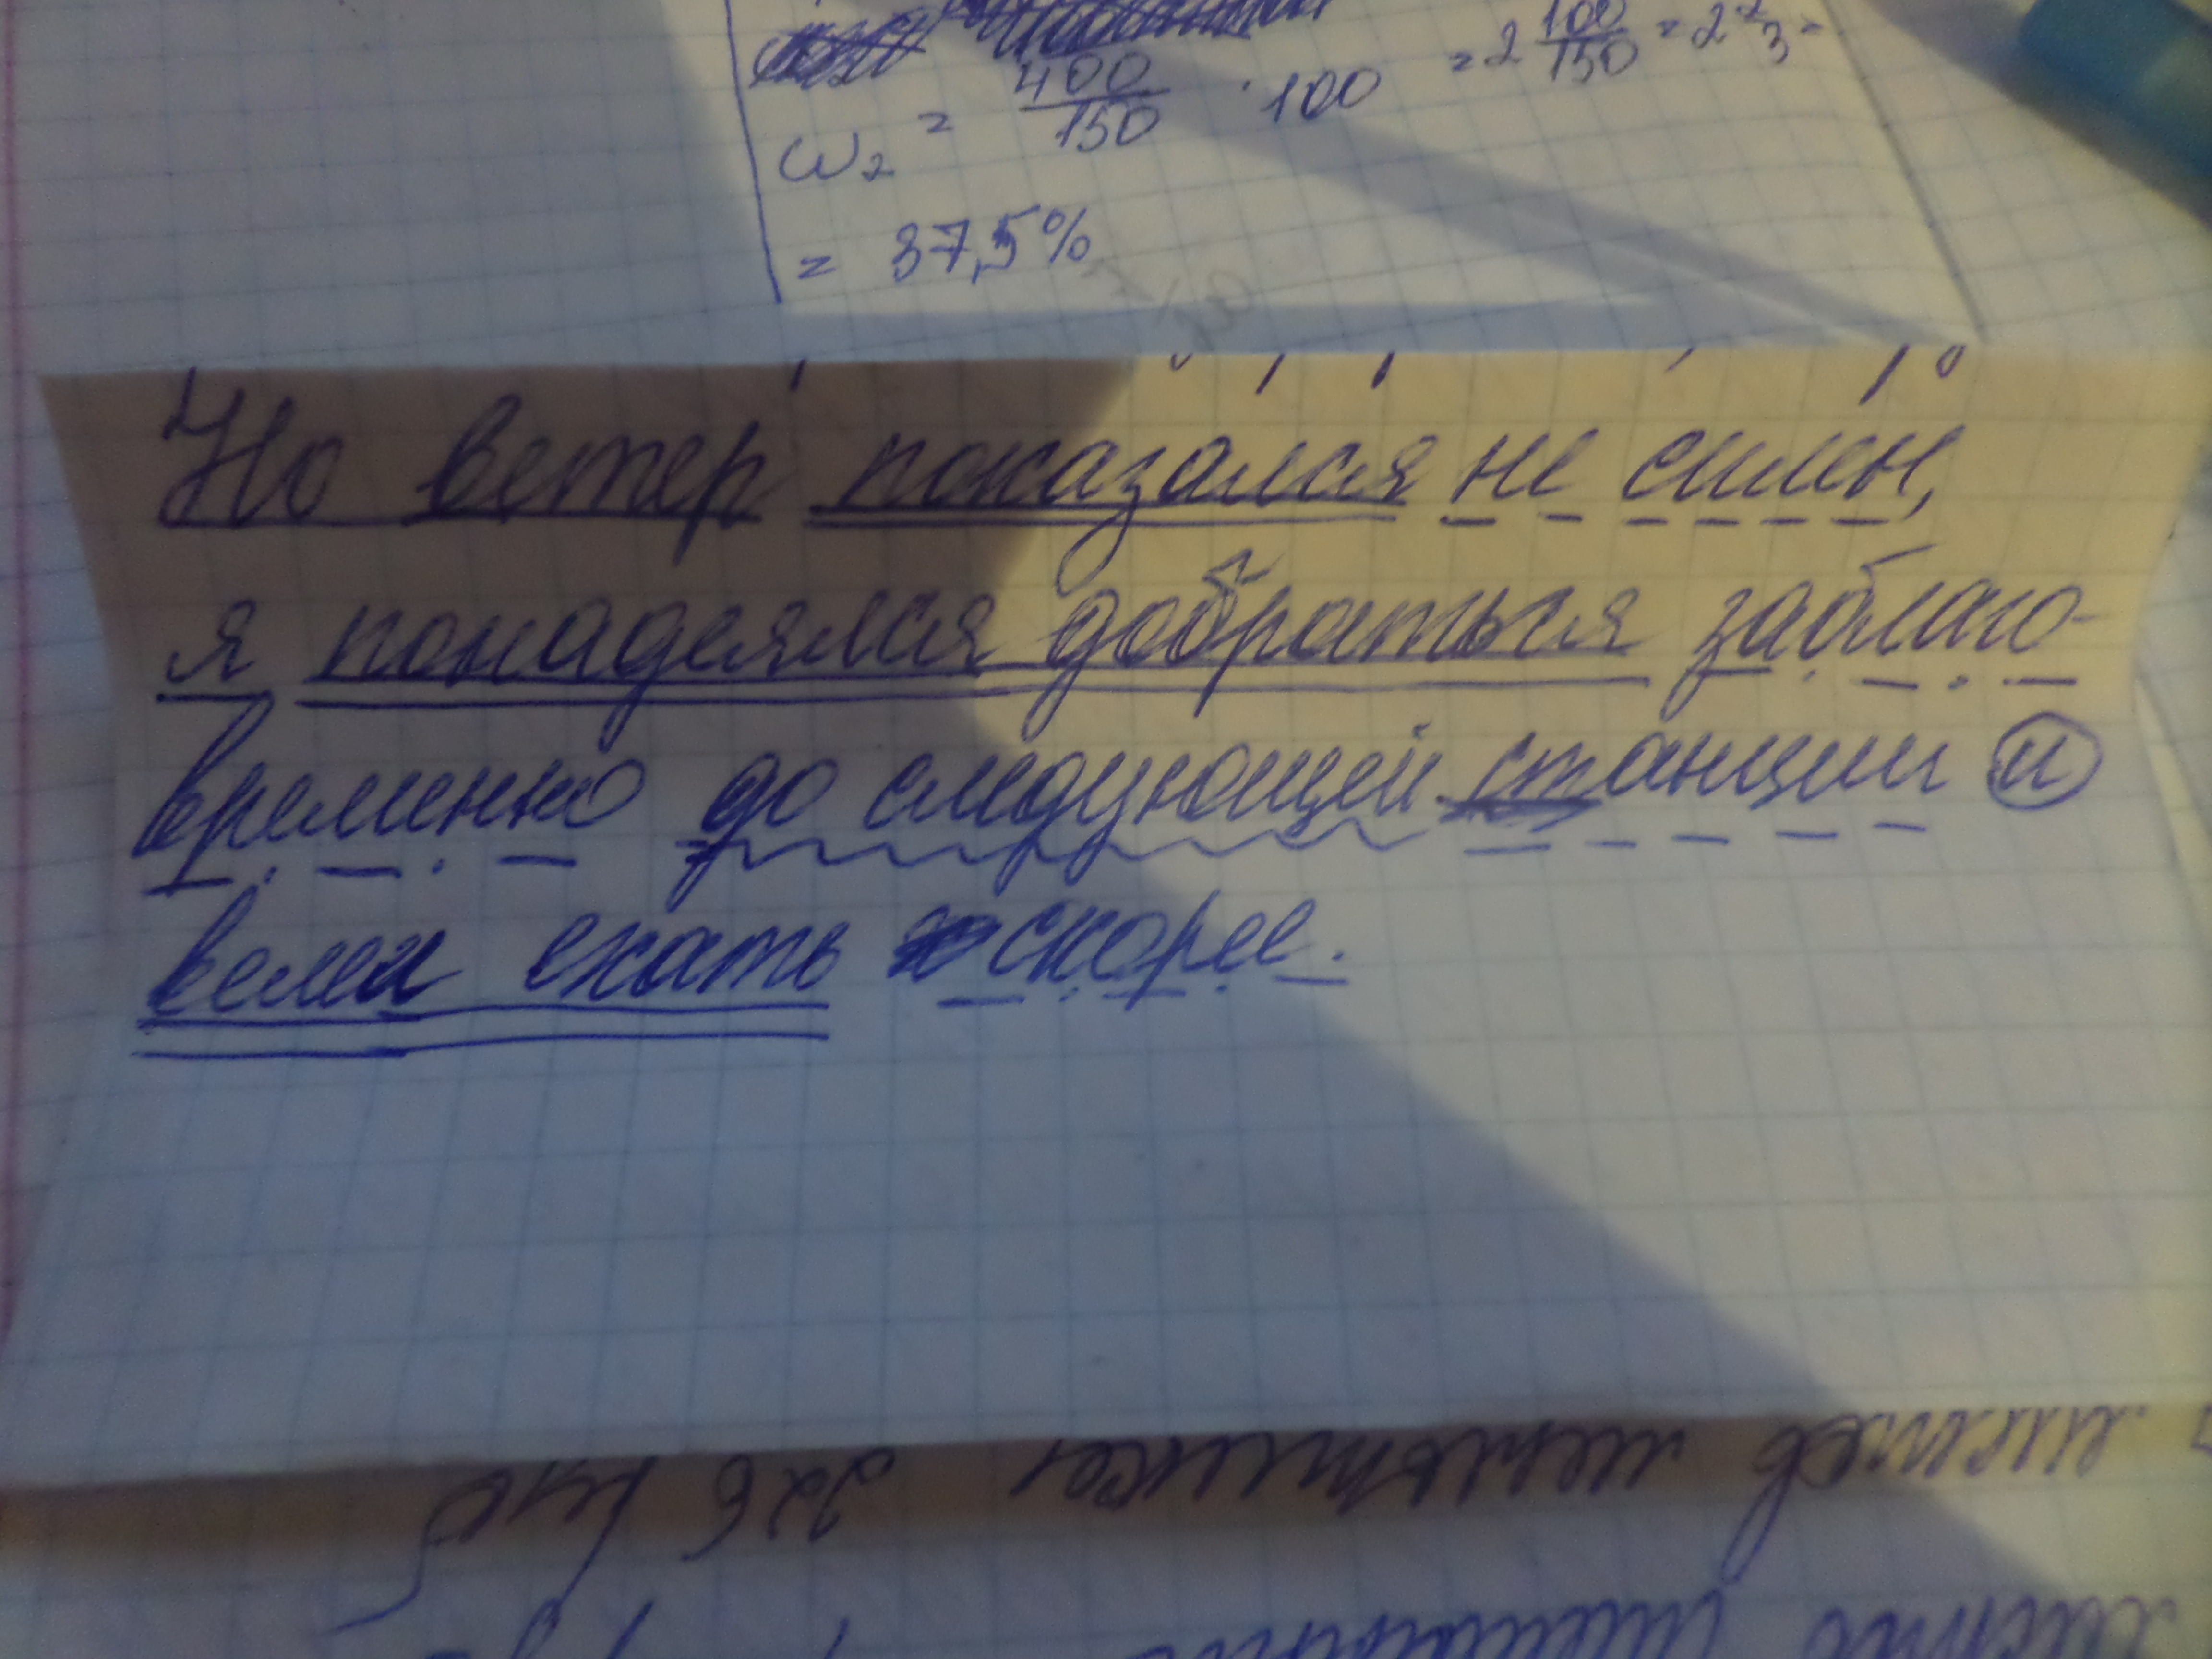 ω₂ = 400/150 · 100 = 2 100/150 = 2 2/3 =
= 37,5%
Но ветер показался не силен,
я понадеялся добраться заблаго-
временно до следующей станции и
велел ехать скорее.